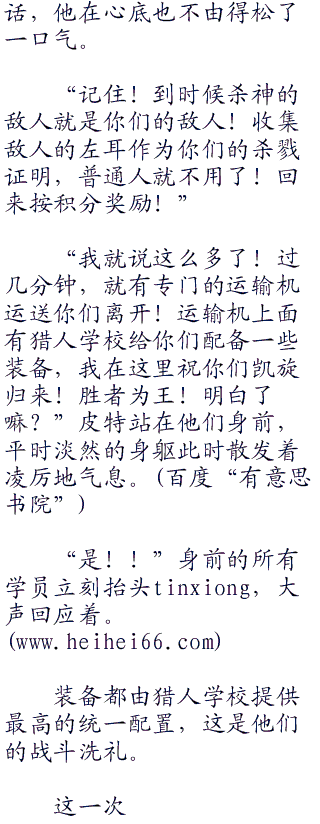 话，他在心底也不由得松了
一口气。
“记住！到时候杀神的
敌人就是你们的敌人！收集
敌人的左耳作为你们的杀戮
证明，普通人就不用了！回
来按积分奖励！”
“我就说这么多了！过
几分钟，就有专门的运输机
运送你们离开！运输机上面
有猎人学校给你们配备一些
装备，我在这里祝你们凯旋
归来！胜者为王！明白了
嘛？”皮特站在他们身前，
平时淡然的身躯此时散发着
凌厉地气息。(百度“有意思
书院”)
“是！！”身前的所有
学员立刻抬头tinxiong，大
声回应着。
(www.heihei66.com)
装备都由猎人学校提供
最高的统一配置，这是他们
的战斗洗礼。
这一次